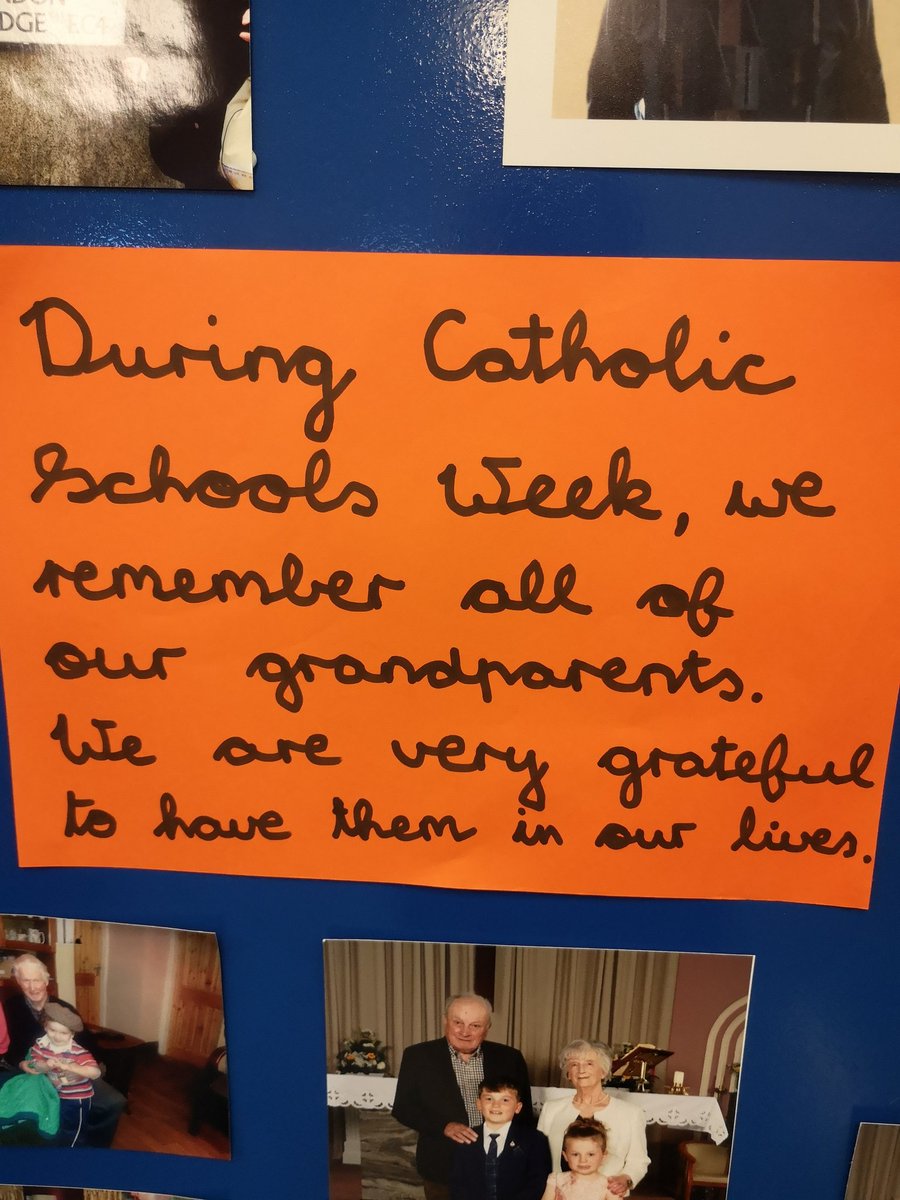 DGE" EC4
During Catholic
Schools Week, we
remember all of
our grandparents.
We are very grateful
to have them in our lives.